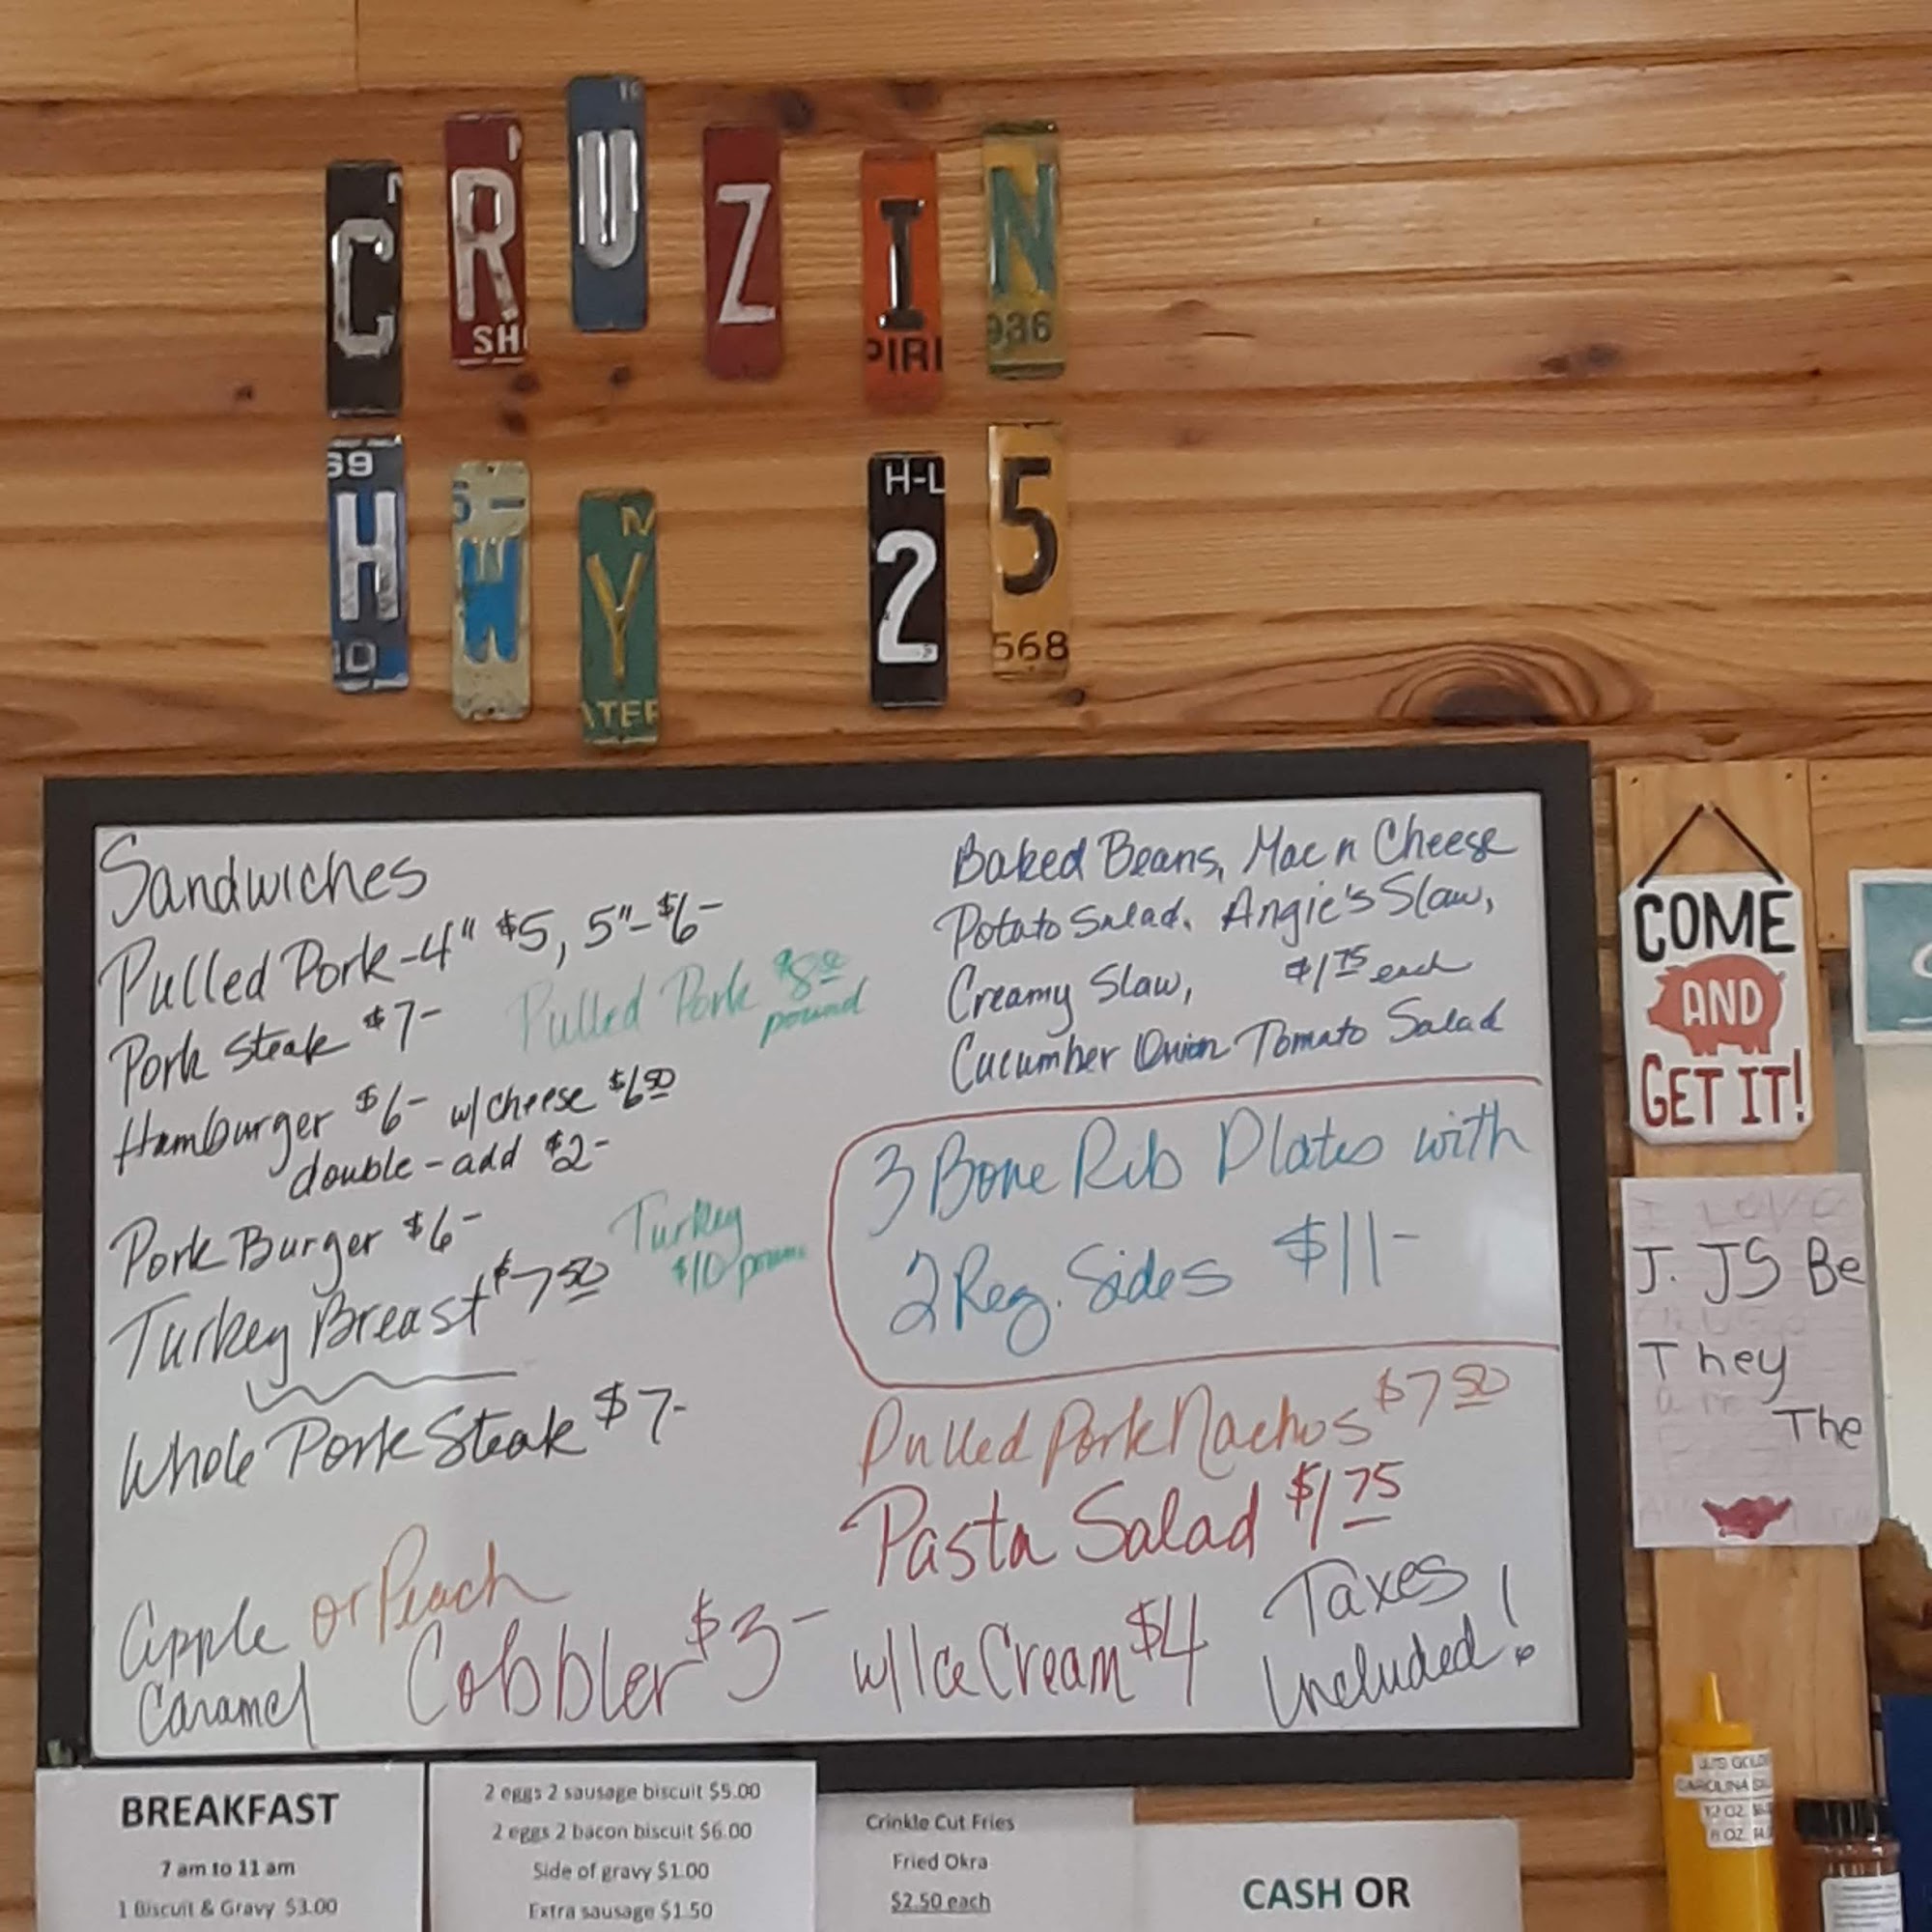 CRUZIN
HWY 25
Sandwiches
Pulled Pork-4" $5, 5"-$6-
Pork Steak $7-
Pulled Pork $8.00
pound
Hamburger $6- w/cheese $6.50
double-add $2-
Pork Burger $6-
Turkey Breast $7.50
Turkey
$10
Whole Pork Steak $7-
Baked Beans, Mac n Cheese
Potato Salad, Angie's Slaw,
Creamy Slaw, $1.75 each
Cucumber Onion Tomato Salad
3 Bone Rib Plates with
2 Reg. Sides $11-
Pulled Pork Nachos $7.50
Pasta Salad $1.75
Apple or Peach
Caramel
Cobbler $3- w/Ice Cream $4
Taxes
Included!
COME
AND
GET IT!
J. JS Be
They
The
BREAKFAST
7 am to 11 am
1 Biscuit & Gravy $3.00
2 eggs 2 sausage biscuit $5.00
2 eggs 2 bacon biscuit $6.00
Side of gravy $1.00
Extra sausage $1.50
Crinkle Cut Fries
Fried Okra
$2.50 each
CASH OR